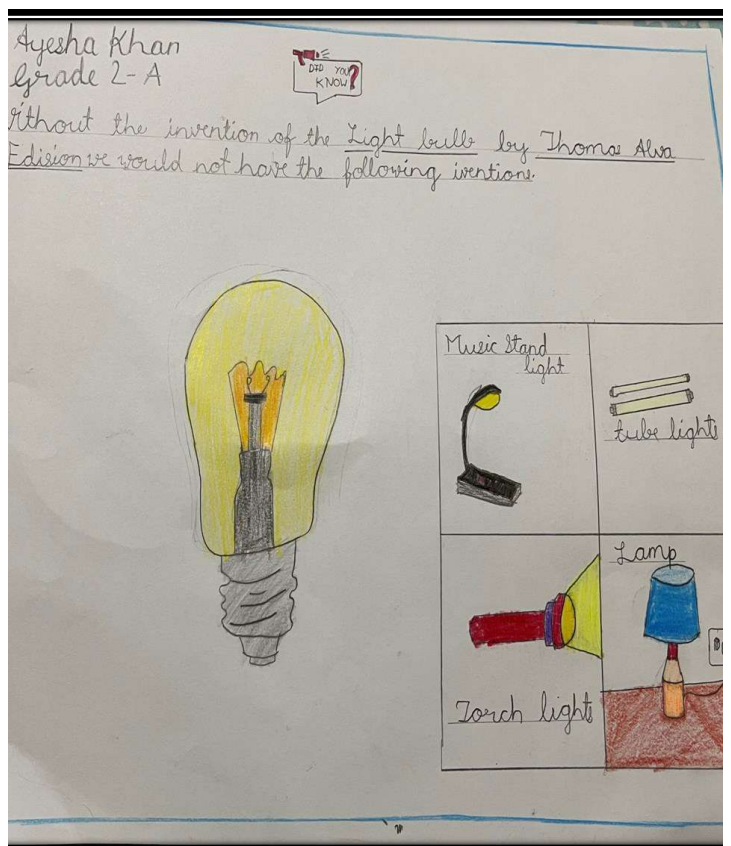 Ayesha Khan
Grade 2-A
DID YOU
KNOW?
ithout the invention of the Light bulb by Thomas Alva
Edision we would not have the following iventions.
Music Stand
light
tube lights
Torch lights
Lamp